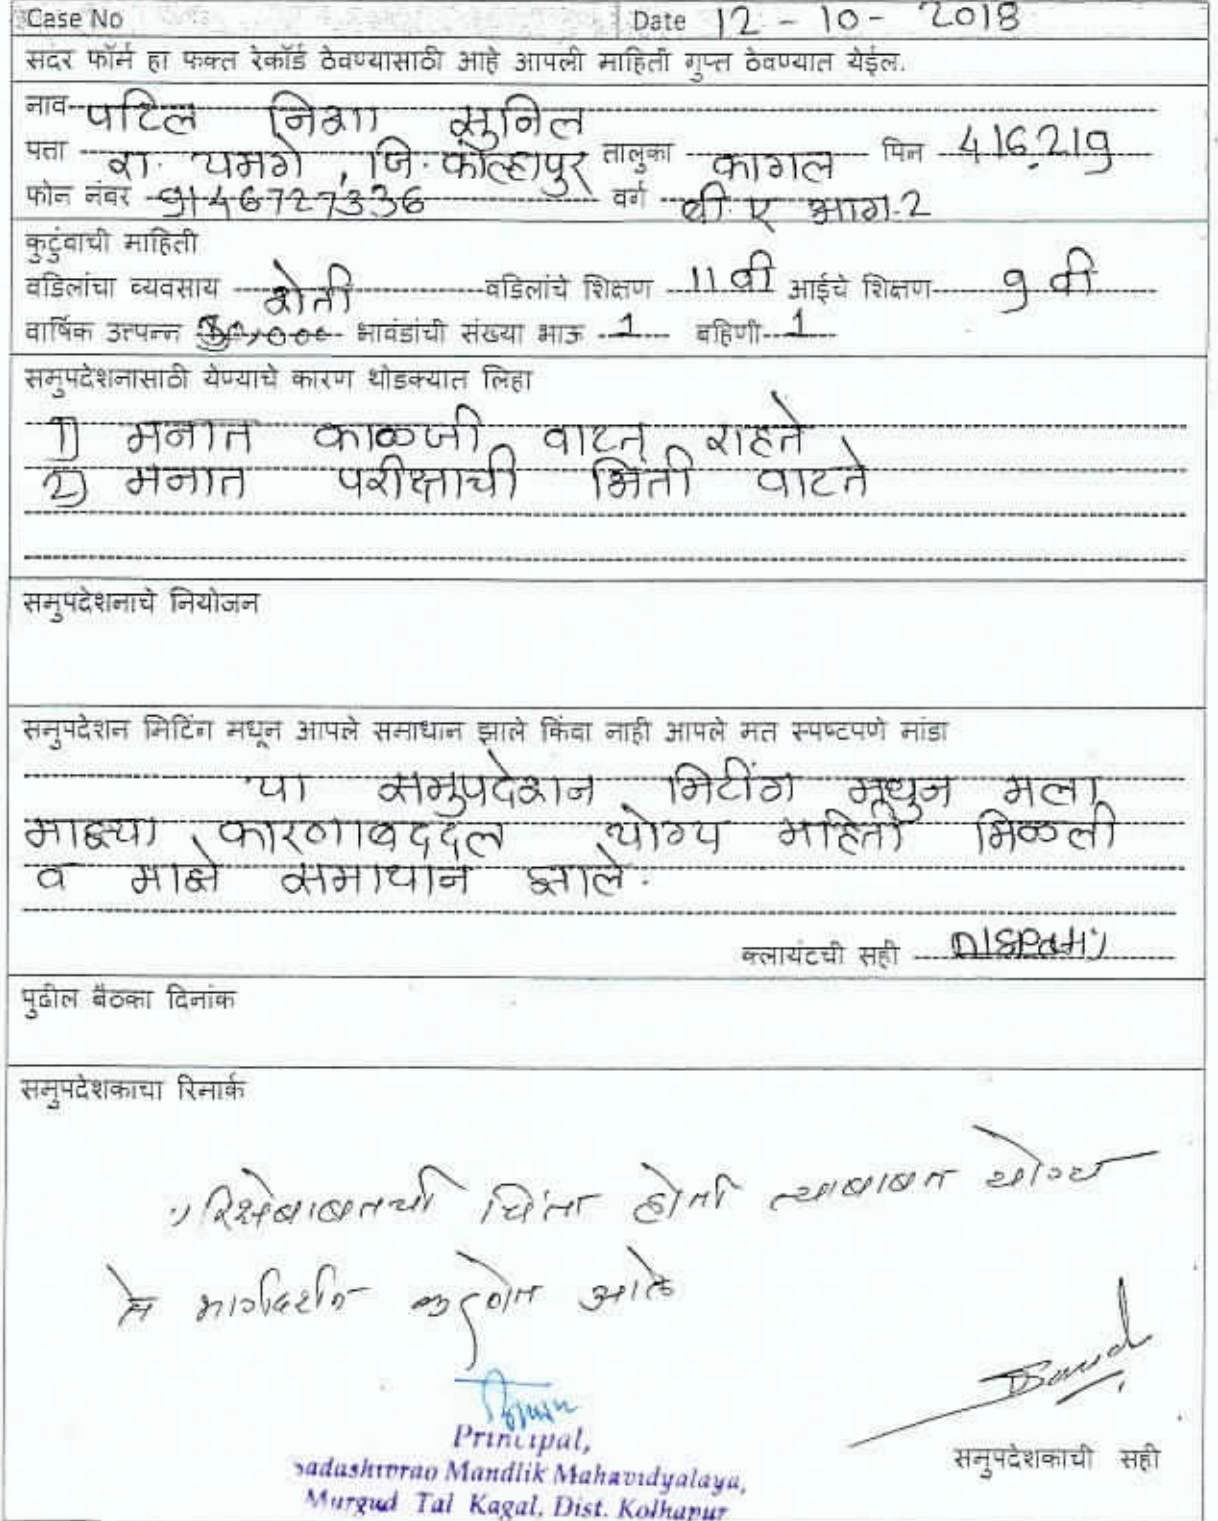 Case No Date 12 - 10 - 2018
सदर फॉर्म हा फक्त रेकॉर्ड ठेवण्यासाठी आहे आपली माहिती गुप्त ठेवण्यात येईल.
नाव पाटिल निशा सुनिल
पत्ता रा. यमगे, जि. कोल्हापूर तालुका कागल पिन 416219
फोन नंबर 9146727336 वर्ग बी. ए भाग.2
कुटुंबाची माहिती
वडिलांचा व्यवसाय शेती वडिलांचे शिक्षण 11 वी आईचे शिक्षण 9 वी
वार्षिक उत्पन्न भावंडांची संख्या भाऊ 1 बहिणी 1
समुपदेशनासाठी येण्याचे कारण थोडक्यात लिहा
1) मनात काळजी वाटत राहते.
2) मनात परीक्षाची भिती वाटते
समुपदेशनाचे नियोजन
समुपदेशन मिटिंग मधून आपले समाधान झाले किंवा नाही आपले मत स्पष्टपणे मांडा
या समुपदेशन मिटींग मधुन मला
माझ्या कारणाबददल योग्य महिती मिळली
व माझे समाधान झाले.
क्लायंटची सही
पुढील बैठका दिनांक
समुपदेशकाचा रिमार्क
चिंता होती त्याबाबत योग्य
ते मार्गदर्शन करणेत आले
Principal,
Sadashivrao Mandlik Mahavidyalaya,
Murgud Tal Kagal, Dist. Kolhapur
समुपदेशकाची सही